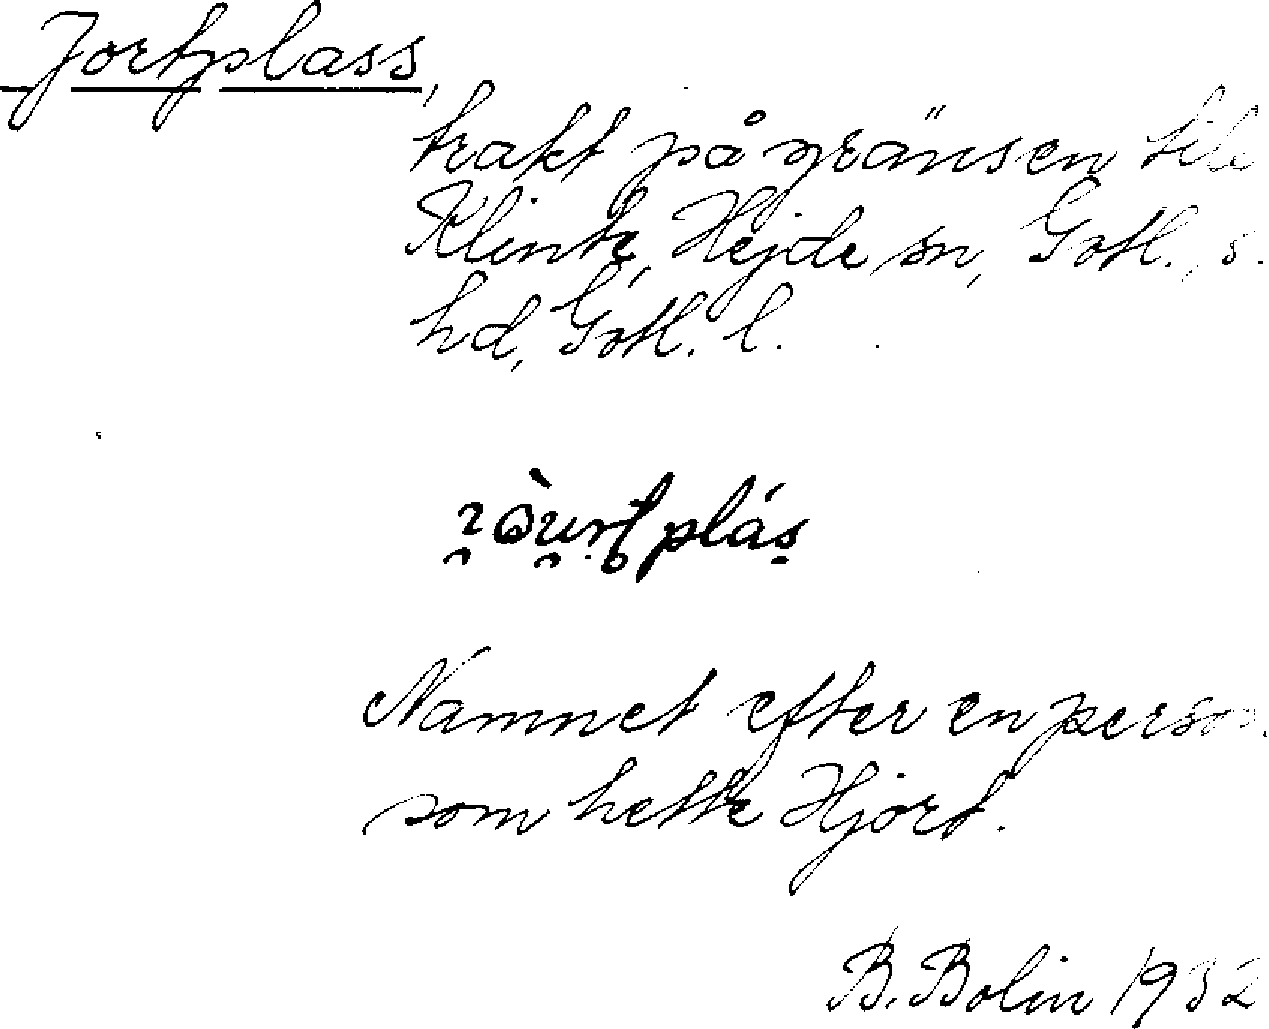 Jortplass,
trakt på gränsen till
Klinte, Hejde sn, Gotl., s.
hd, Gotl. l.
plás
Namnet efter en person
som hette Hjort.
B. Bolin 1932